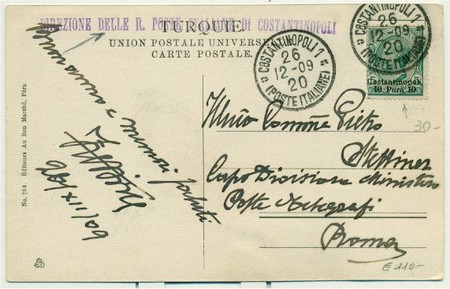 DIREZIONE DELLE R. POSTE ITALIANE DI COSTANTINOPOLI
TURQUIE
UNION POSTALE UNIVERSELLE
CARTE POSTALE.
COSTANTINOPOLI 1
26
12-09
20
(POSTE ITALIANE)
COSTANTINOPOLI 1
26
12-09
20
(POSTE ITALIANE)
Costantinopoli
10 Parà 10
30-
Pietro
Stettiner
Capo Divisione Ministero
Poste Telegrafi
Roma
€110-
saluti
26/XII/09
No. 784. Editeurs Au Bon Marché, Péra